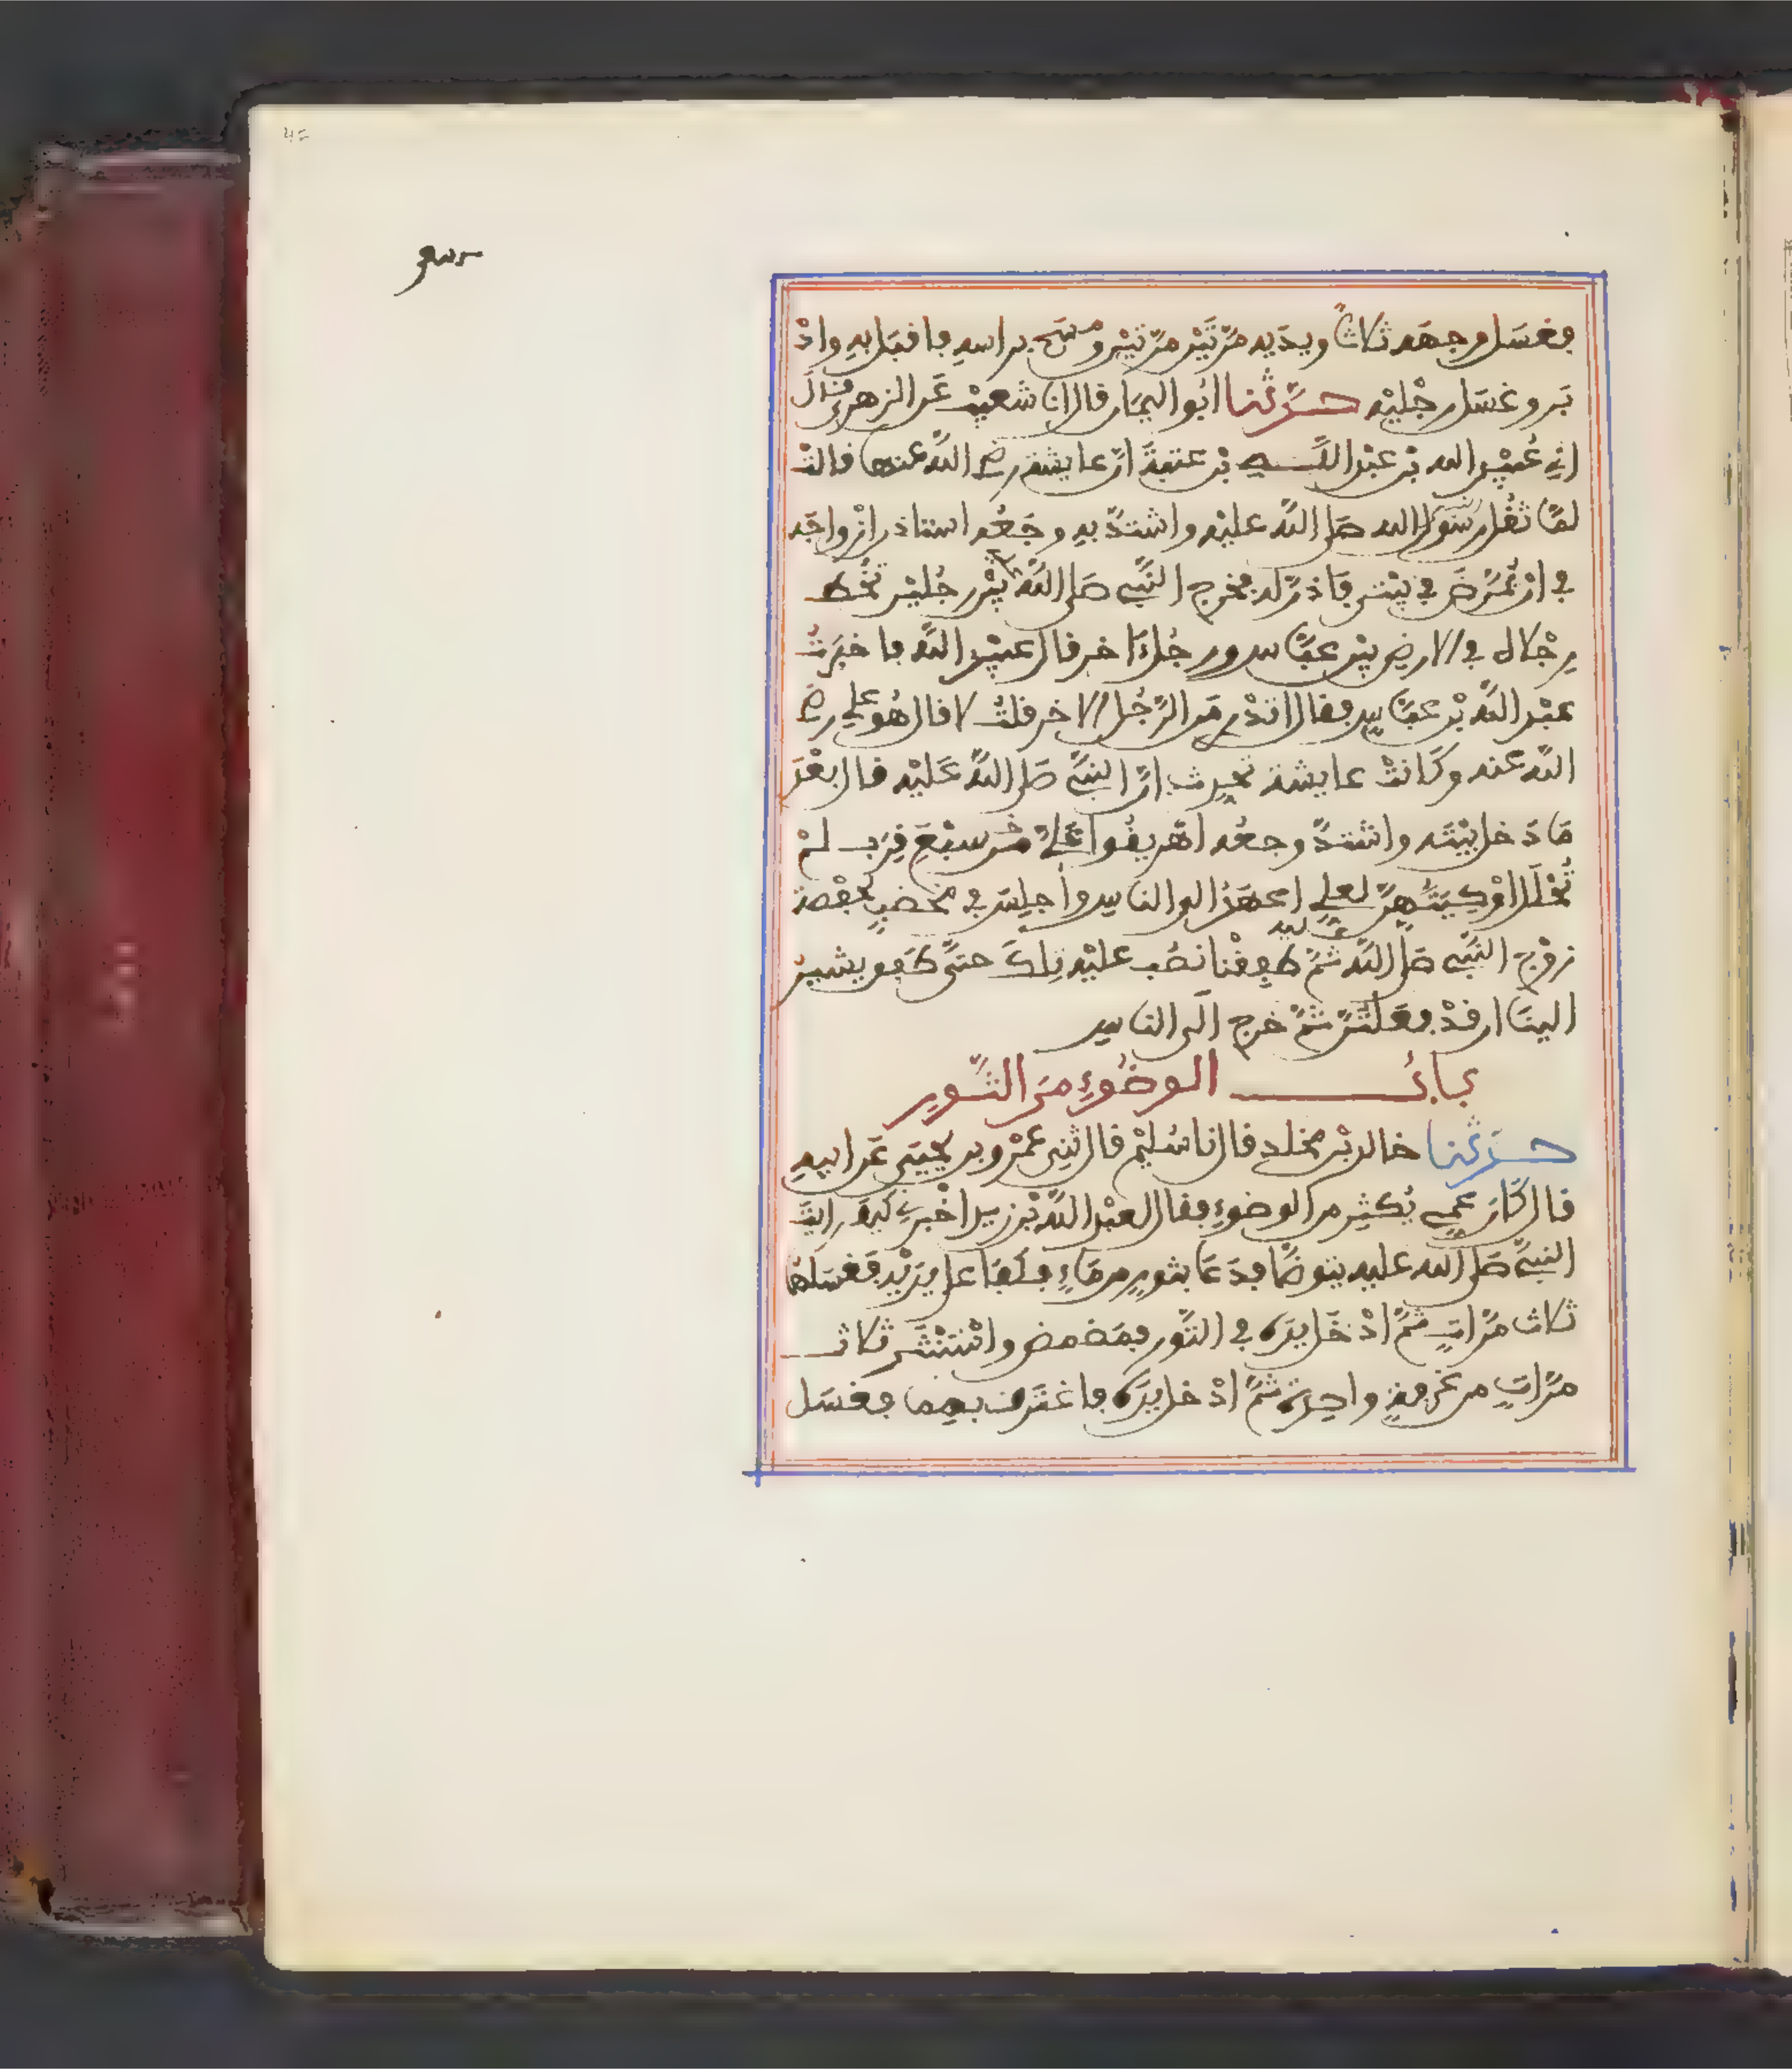 فغسل وجهه ثلاثاً ويديه مرّتين مرّتين ومسح براسه فاقبل به واد
بر وغسل رجليه حدّثنا ابو اليمان قال انا شعيب عن الزهري قال
اني عبيد الله بن عبد الله بن عتبة ان عايشة رضي الله عنها قالت
لمّا ثقل رسول الله صلى الله عليه واشتدّ به وجعه استاذن ازواجه
في ان يمرّض في بيتي فاذنّ له فخرج النبي صلى الله بين رجلين تخط
رجلاه في الارض بين عبّاس ورجل اخر قال عبيد الله فاخبرت
عبد الله بن عبّاس فقال اتدري من الرّجل الاخر قلت لا قال هو علي رضي
الله عنه وكانت عايشة تحدث انّ النبي صلى الله عليه قال بعد
ما دخل بيته واشتدّ وجعه اهريقوا عليّ من سبع قرب لم
تحلل اوكيتهنّ لعلي اعهد الى الناس واجلس في مخضب لحفصة
زوج النبي صلى الله عليه ثمّ طفقنا نصب عليه تلك حتّى طفق يشير
الينا ان قد فعلتنّ ثمّ خرج الى الناس
باب الوضوء من التّور
حدّثنا خالد بن مخلد قال نا سليم قال ثني عمرو بن يحيى عن ابيه
قال كان عمي يكثر من الوضوء فقال لعبد الله بن زيد اخبرني كيف رايت
النبي صلى الله عليه يتوضّا فدعا بتور من ماء فكفا على يديه فغسلهما
ثلاث مرّات ثمّ ادخل يده في التّور فمضمض واستنثر ثلاث
مرّات من غرفة واحدة ثمّ ادخل يده فاغترف بهما فغسل